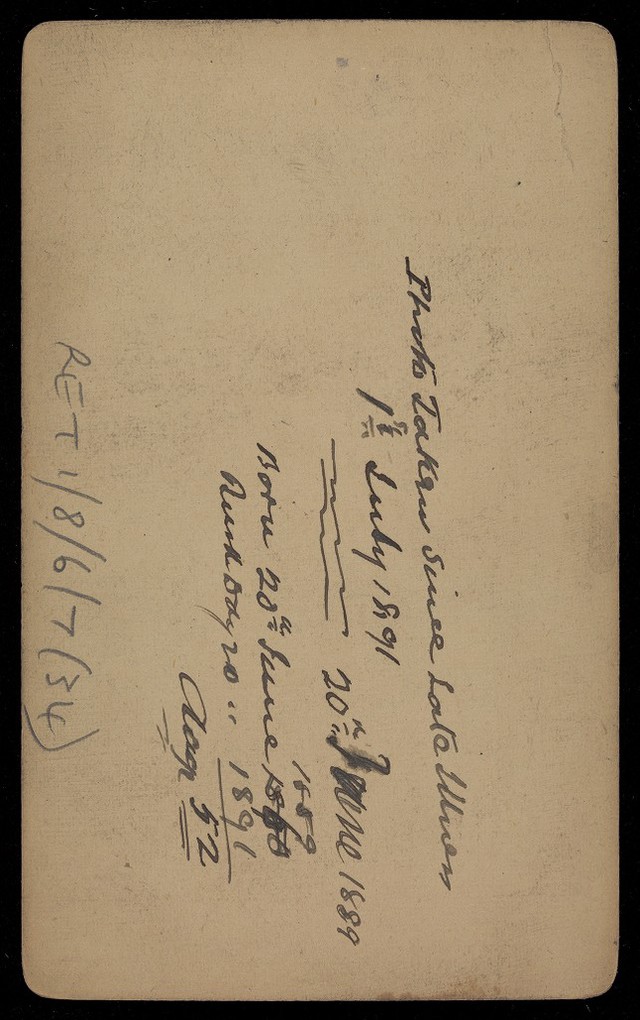 Photo Taken Since Late Illness
1st July 1891
20th June 1889
1889
Born 20th June
Birthday 20 " 1891
Age 52
RET 1/8/6/7 (34)